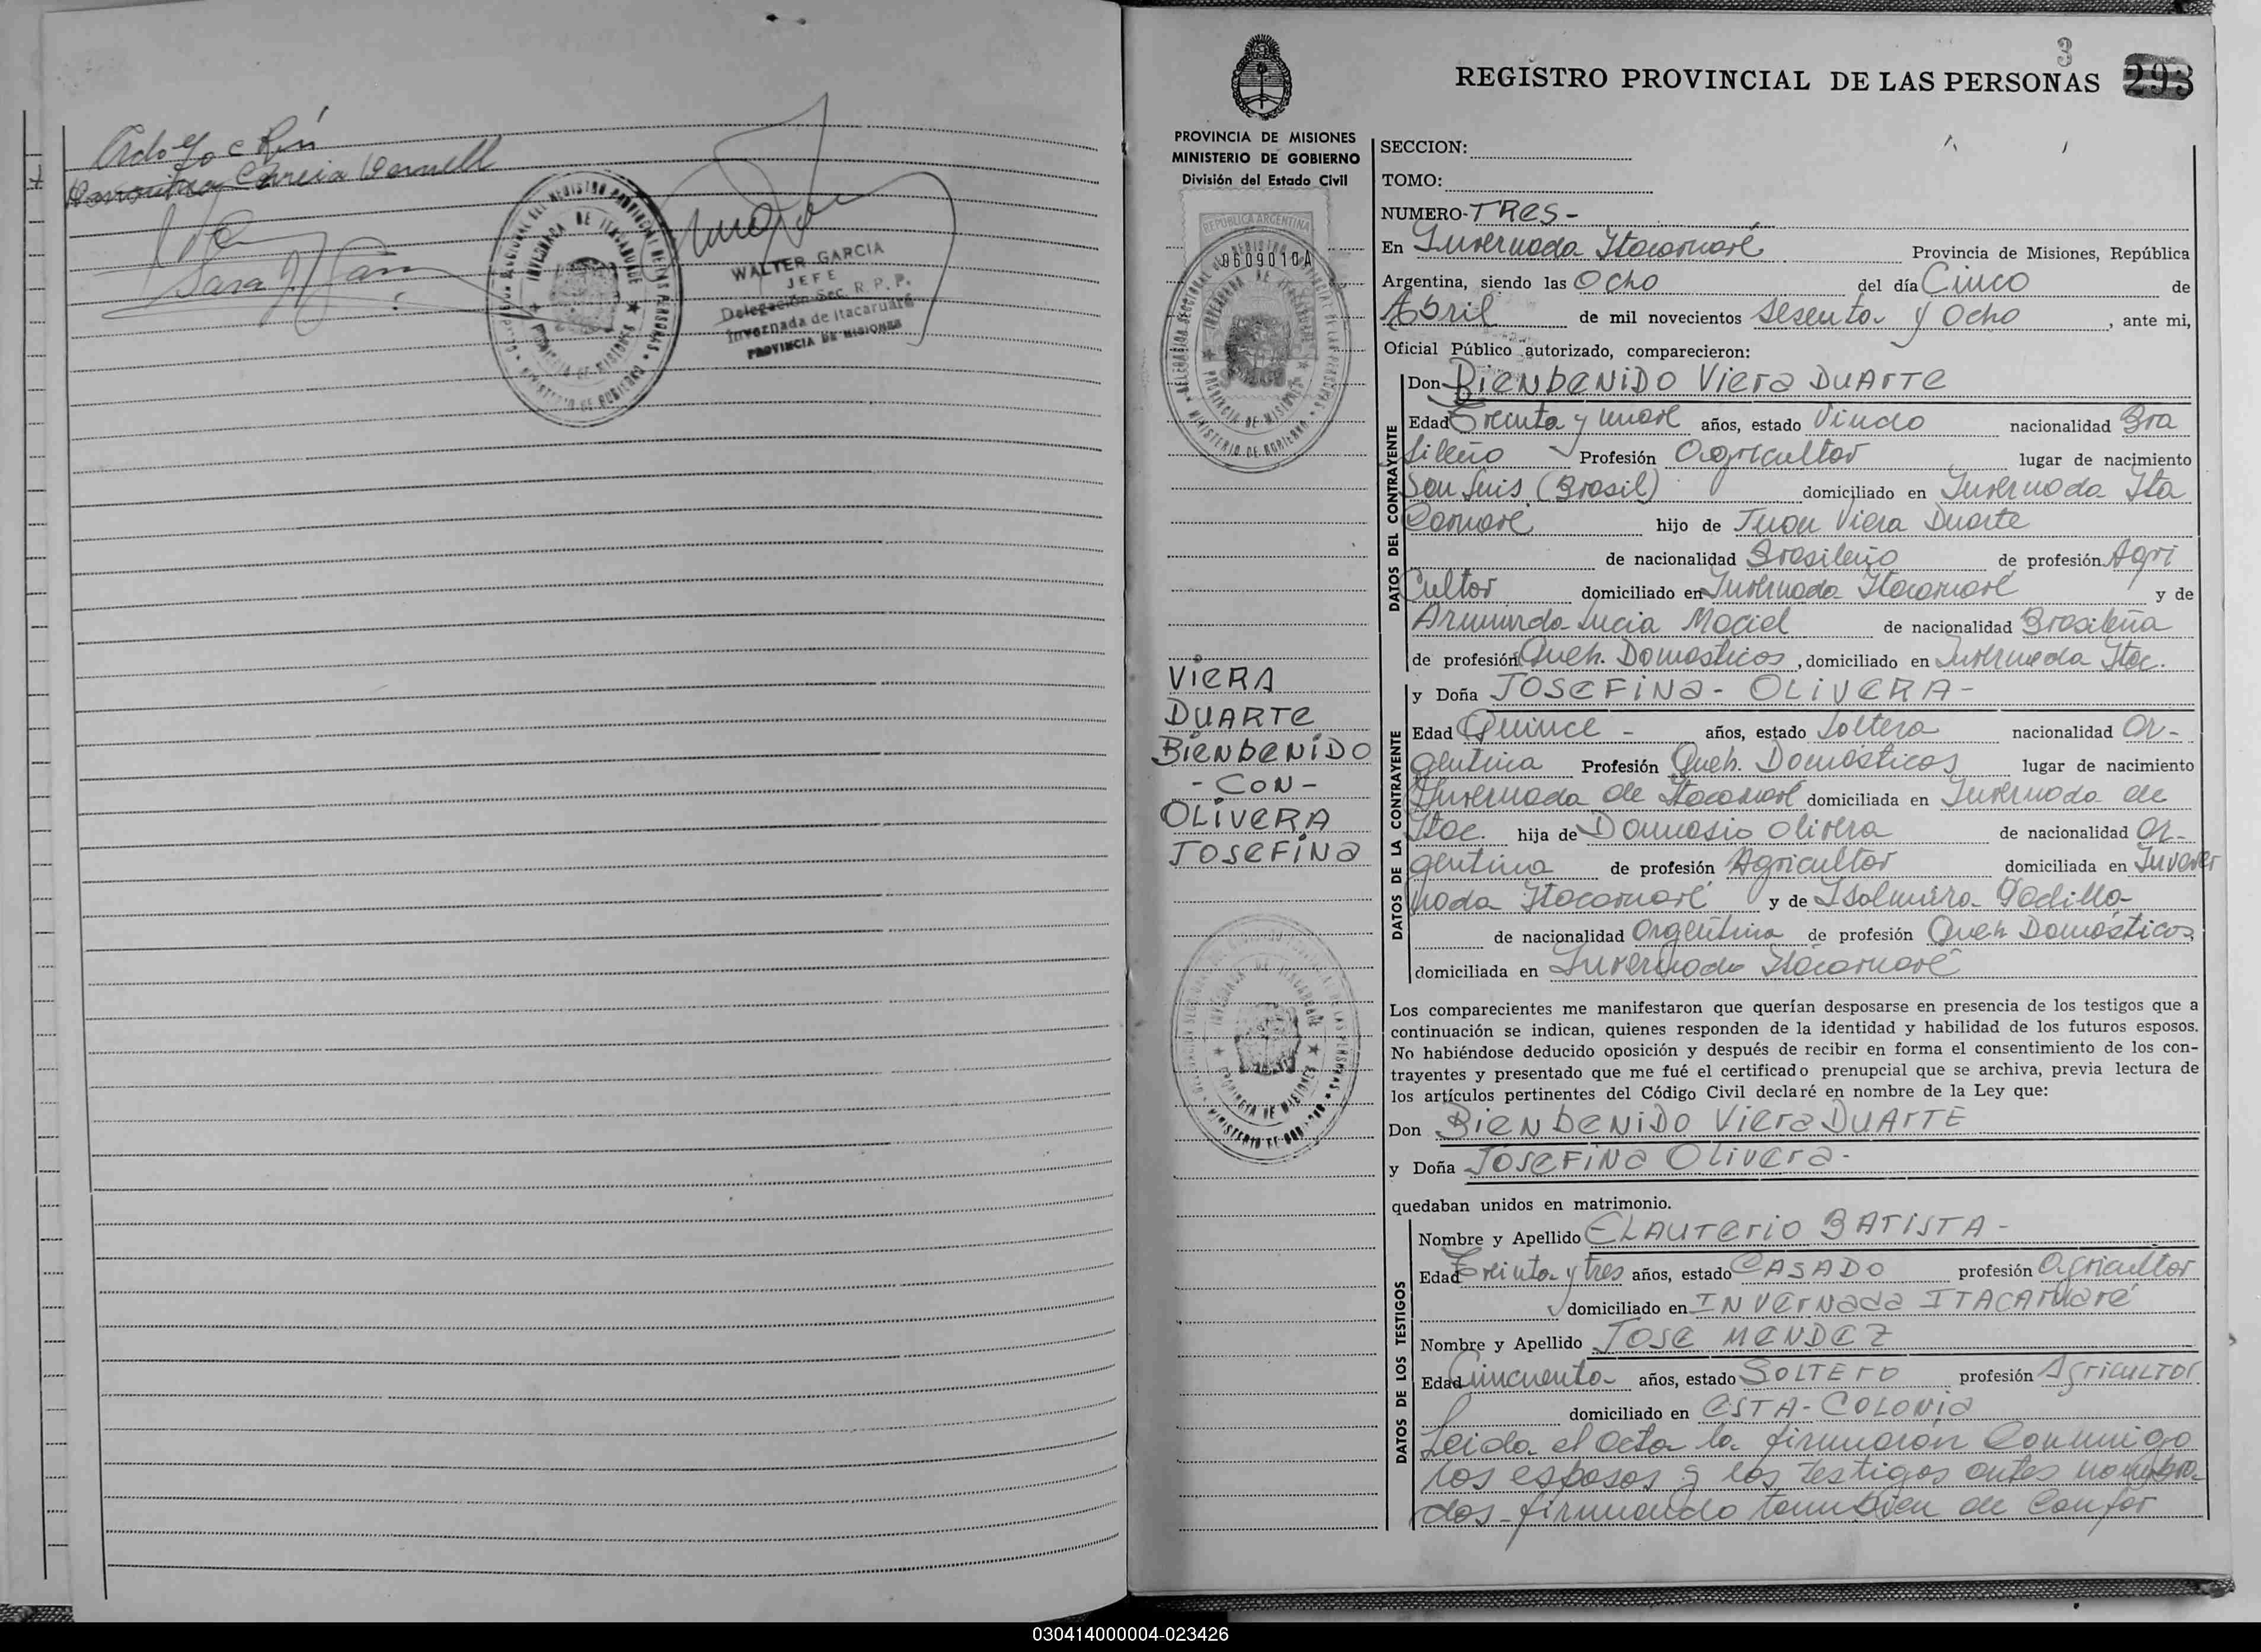 Adolfo
Garcia
Sara
WALTER GARCIA
JEFE
Delegación Sec. R. P. P.
Invernada de Itacaruaré
PROVINCIA DE MISIONES
3
REGISTRO PROVINCIAL DE LAS PERSONAS 293
PROVINCIA DE MISIONES
MINISTERIO DE GOBIERNO
División del Estado Civil
REPUBLICA ARGENTINA
0609010A
VIERA
DUARTE
BIENBENIDO
- CON -
OLIVERA
JOSEFINA
SECCION:
TOMO:
NUMERO- TRES -
En Invernada Itacaruaré Provincia de Misiones, República
Argentina, siendo las Ocho del día Cinco de
Abril de mil novecientos sesenta y ocho, ante mi,
Oficial Público autorizado, comparecieron:
DATOS DEL CONTRAYENTE
Don BIENBENIDO Viera DUARTE
Edad Treinta y nueve años, estado Viudo nacionalidad Bra
sileño Profesión Agricultor lugar de nacimiento
San Luis (Brasil) domiciliado en Invernada Ita
Caruaré hijo de Juan Viera Duarte
de nacionalidad Brasileño de profesión Agri
Cultor domiciliado en Invernada Itacaruaré y de
Lucia Maciel de nacionalidad Brasileña
de profesión Queh. Domosticos, domiciliado en Invernada Itac.
DATOS DE LA CONTRAYENTE
y Doña JOSEFINA - OLIVERA -
Edad Quince - años, estado Soltera nacionalidad Ar-
gentina Profesión Queh. Domósticos lugar de nacimiento
Invernada de Itacaruaré domiciliada en Invernada de
Itac. hija de Damasio Olivera de nacionalidad Ar-
gentina de profesión Agricultor domiciliada en Inver
nada Itacaruaré y de Isolmira Padilla
de nacionalidad Argentina de profesión Queh Domósticos
domiciliada en Invernada Itacaruaré
Los comparecientes me manifestaron que querían desposarse en presencia de los testigos que a
continuación se indican, quienes responden de la identidad y habilidad de los futuros esposos.
No habiéndose deducido oposición y después de recibir en forma el consentimiento de los con-
trayentes y presentado que me fué el certificado prenupcial que se archiva, previa lectura de
los artículos pertinentes del Código Civil declaré en nombre de la Ley que:
Don BIENBENIDO Viera DUARTE
y Doña JOSEFINA Olivera -
quedaban unidos en matrimonio.
DATOS DE LOS TESTIGOS
Nombre y Apellido ELAUTERIO BATISTA -
Edad Treinta y tres años, estado CASADO profesión Agricultor
domiciliado en INVERNADA ITACARUARÉ
Nombre y Apellido JOSE MENDEZ
Edad Cincuenta años, estado SOLTERO profesión AGRICULTOR
domiciliado en ESTA - COLONIA
Leida el acta la firmaron Conmigo
los esposos y los testigos antes nombra-
dos - firmando tambien de Confor
030414000004-023426